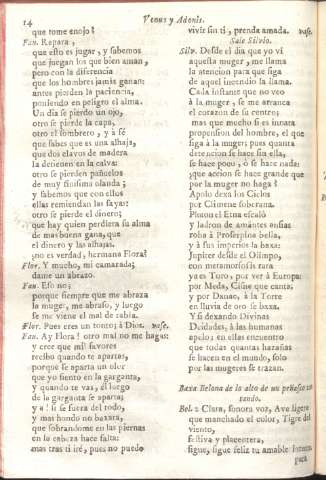 14
Venus y Adonis.
que tome enojo?
Fau. Repara,
que esto es jugar, y sabemos
que juegan los que bien aman,
pero con la diferencia
que los hombres jamás ganan:
antes pierden la paciencia,
poniendo en peligro el alma.
Un dia se pierde un ojo,
otro se pierde la capa,
otro el sombrero, y à fé
que sabes que es una alhaja,
que dos clavos de madera
la detienen en la calva:
otro se pierden pañuelos
de muy finisima olanda;
y sabemos que con ellos
ellas remiendan las sayas:
otro se pierde el dinero;
que hay quien perdiera su alma
de mas buena gana, que
el dinero y las alhajas.
¿no es verdad, hermana Flora?
Flor. Y mucho, mi camarada;
dame un abrazo.
Fau. Eso no;
porque siempre que me abraza
la muger, me abraso, y luego
se me viene el mal de rabia.
Flor. Pues eres un tonto; à Dios. vase.
Fau. Ay Flora! otro mal no me hagas:
y cree que mil favores
recibo quando te apartas;
porque se aparta un
que yo siento en la garganta,
y quando te vas, el luego
de la garganta se aparta;
y à si se fuera del todo,
y mas hondo no baxara,
que sobrandome en las piernas
en la cabeza hace falta:
mas tras ti iré, pues no puedo
vivir sin ti, prenda amada. vase.
Sale Silvio.
Silv. Desde el dia que yo ví
aquella muger, me llama
la atencion para que siga
de aquel incendio la llama.
Cada instante que no veo
à la muger, se me arranca
el corazon de su centro;
mas que mucho si es innata
propension del hombre, el que
siga à la muger; pues quanta
detencion se hace sin ella,
se hace poco, ò se hace nada:
¿que accion se hace grande que
por la muger no haga?
Apolo dexa los Cielos
por Climene soberana.
Pluton el Etna escaló
y ladron de amantes ansias
roba à Proserpina bella,
y à sus imperios la baxa:
Jupiter desde el Olimpo,
con metamorfosis rara
ya es Toro, por ver à Europa:
por Meda, Cisne que canta;
y por Danae, à la Torre
en lluvia de oro se baxa.
Y si dexando Divinas
Deidades, à las humanas
apelo; en ellas encuentro
que todas quantas hazañas
se hacen en el mundo, solo
por las mugeres se trazan.
Baxa Belona de lo alto de un peñasco
tando.
Bel. Clara, sonora voz, Ave ligera
que manchado el color, Tigre del
viento,
festiva y placentera,
sigue, sigue feliz tu amable
para